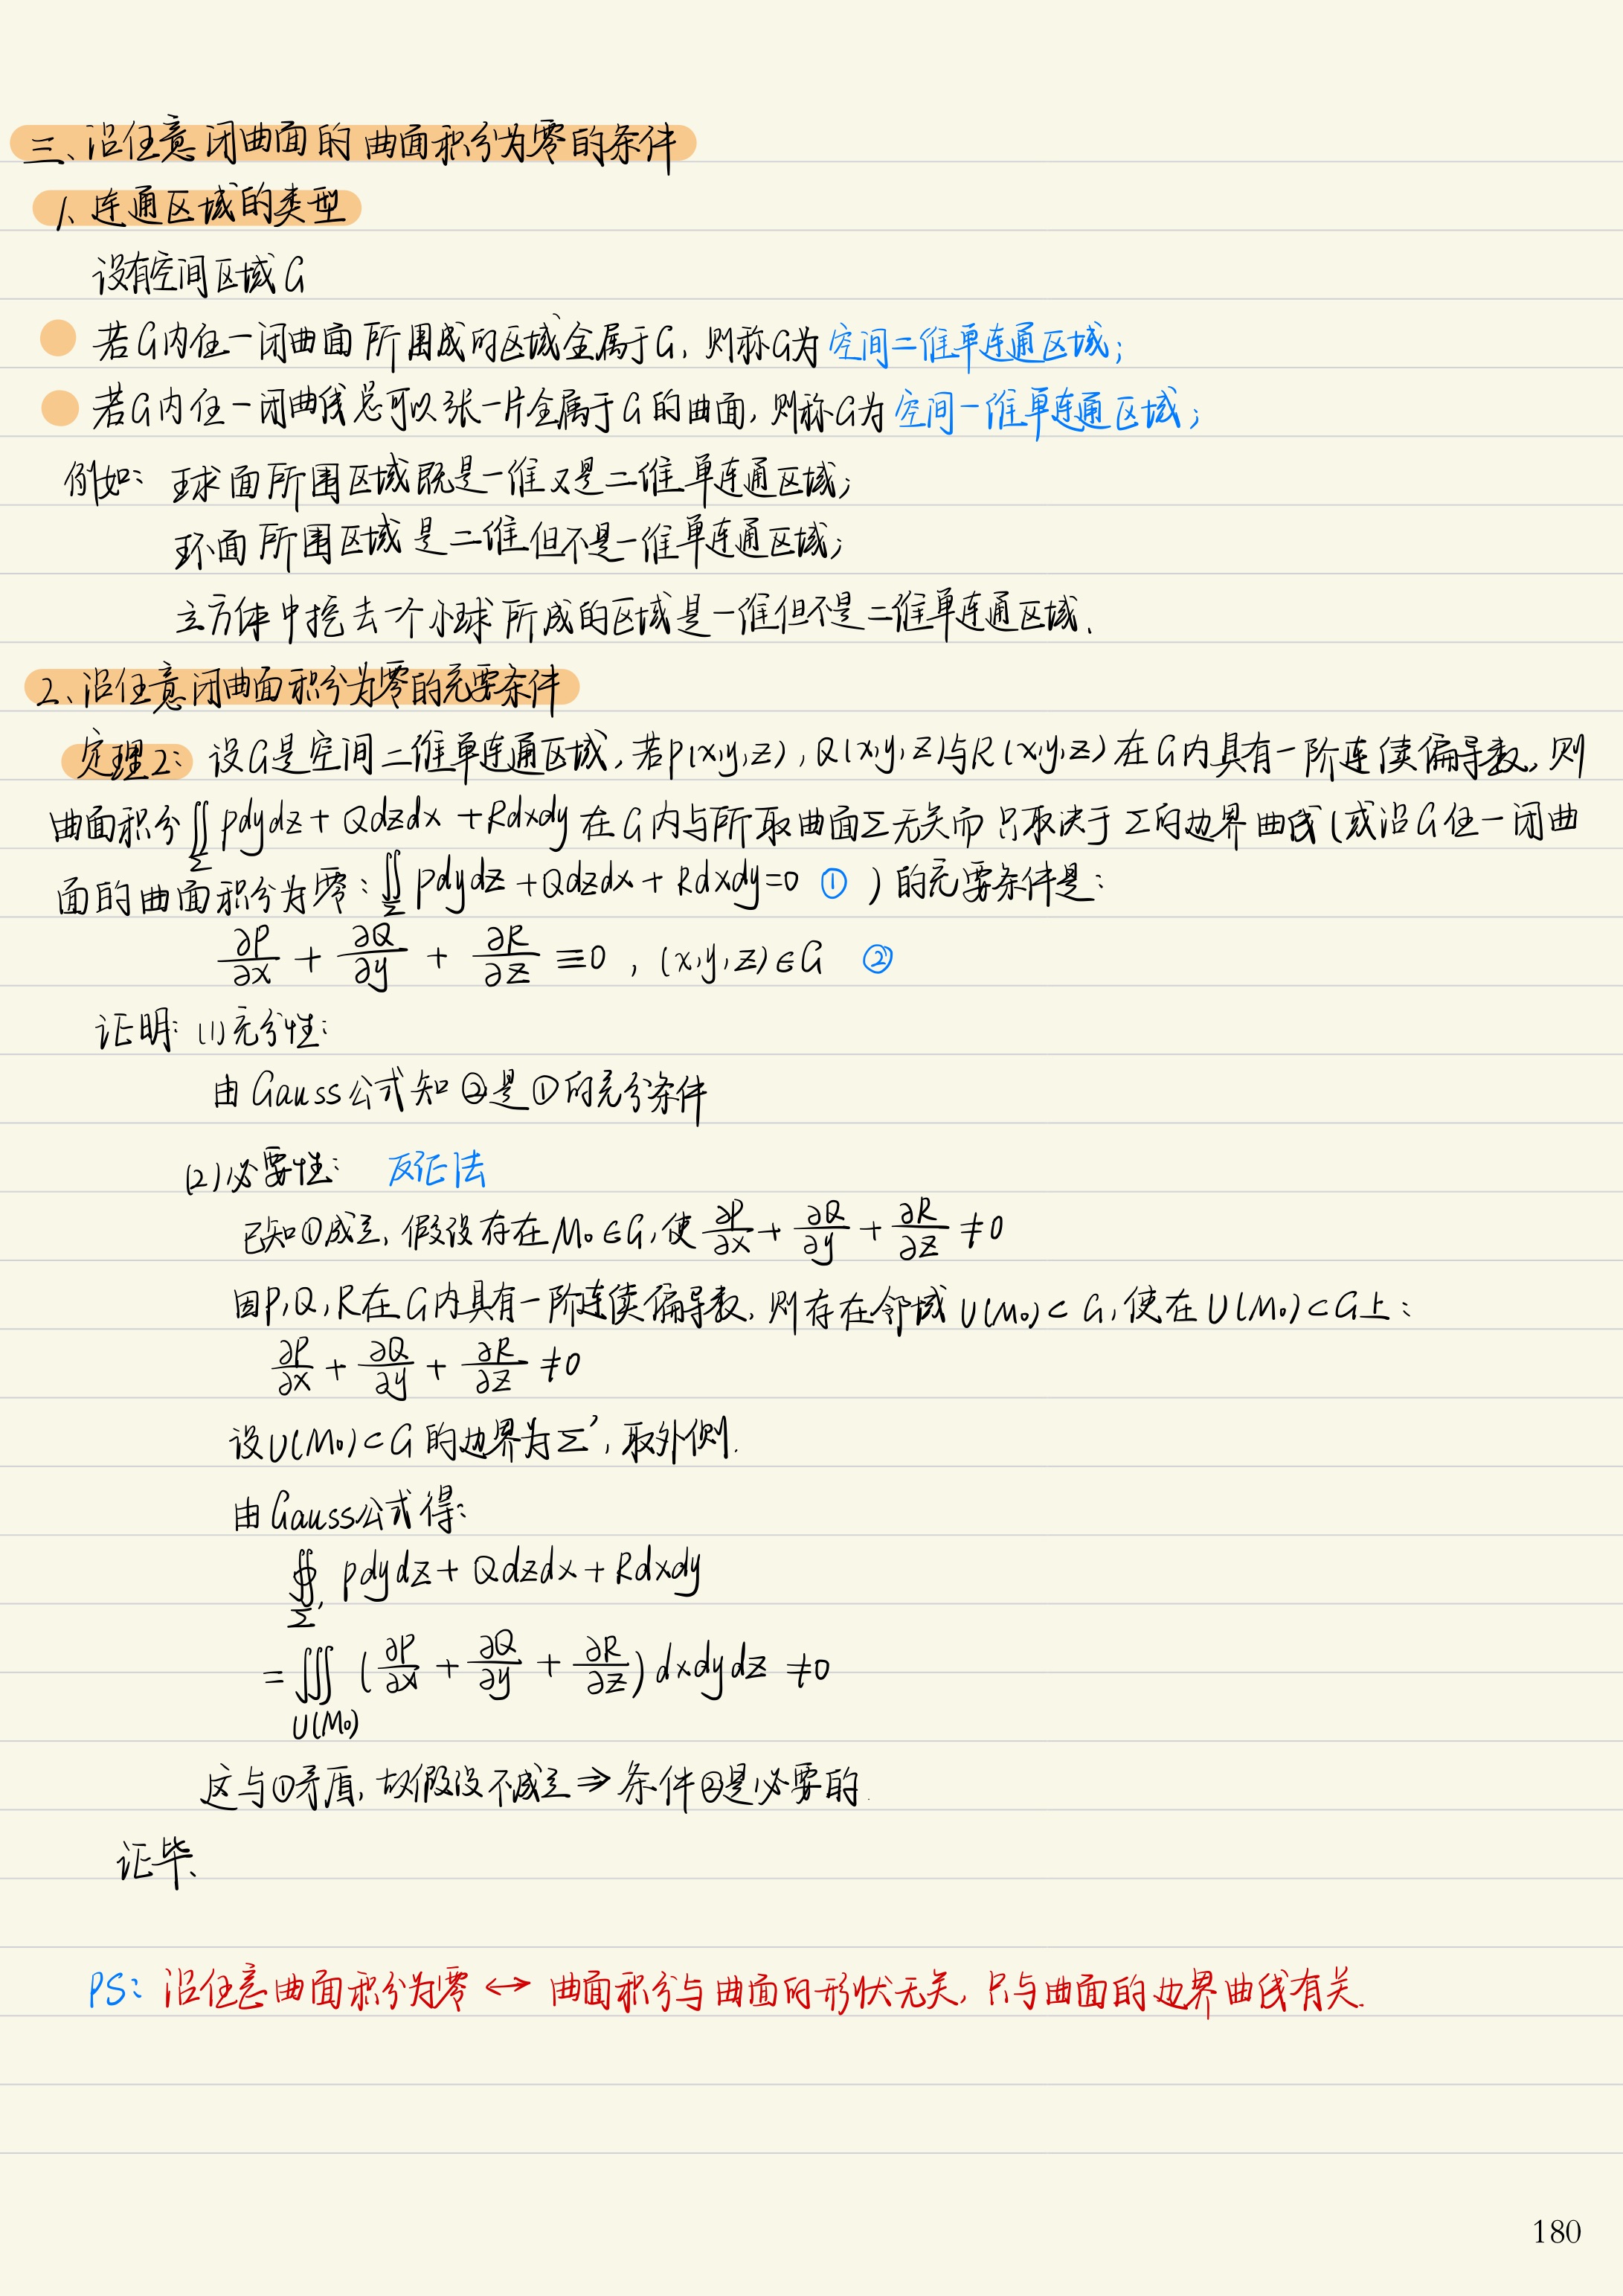 三、沿任意闭曲面的曲面积分为零的条件
1、连通区域的类型
设有空间区域G
若G内任一闭曲面所围成的区域全属于G,则称G为空间二维单连通区域;
若G内任一闭曲线总可以张一片全属于G的曲面,则称G为空间一维单连通区域;
例如: 球面所围区域既是一维又是二维单连通区域;
环面所围区域是二维但不是一维单连通区域;
立方体中挖去一个小球所成的区域是一维但不是二维单连通区域.
2、沿任意闭曲面积分为零的充要条件
定理2: 设G是空间二维单连通区域,若P(x,y,z),Q(x,y,z)与R(x,y,z)在G内具有一阶连续偏导数,则
曲面积分∬_Σ Pdydz+Qdzdx+Rdxdy在G内与所取曲面Σ无关而只取决于Σ的边界曲线(或沿G任一闭曲
面的曲面积分为零:∬_Σ Pdydz+Qdzdx+Rdxdy=0 ① )的充要条件是:
∂P/∂x + ∂Q/∂y + ∂R/∂z ≡0 , (x,y,z)∈G ②
证明: (1)充分性:
由Gauss公式知②是①的充分条件
(2)必要性: 反证法
已知①成立,假设存在M₀∈G,使∂P/∂x + ∂Q/∂y + ∂R/∂z ≠0
因P,Q,R在G内具有一阶连续偏导数,则存在邻域U(M₀)⊂G,使在U(M₀)⊂G上:
∂P/∂x + ∂Q/∂y + ∂R/∂z ≠0
设U(M₀)⊂G的边界为Σ',取外侧.
由Gauss公式得:
∯_Σ' Pdydz+Qdzdx+Rdxdy
=∭_U(M₀) (∂P/∂x + ∂Q/∂y + ∂R/∂z)dxdydz ≠0
这与①矛盾,故假设不成立⇒条件②是必要的.
证毕、
PS: 沿任意曲面积分为零↔曲面积分与曲面的形状无关,只与曲面的边界曲线有关.
180